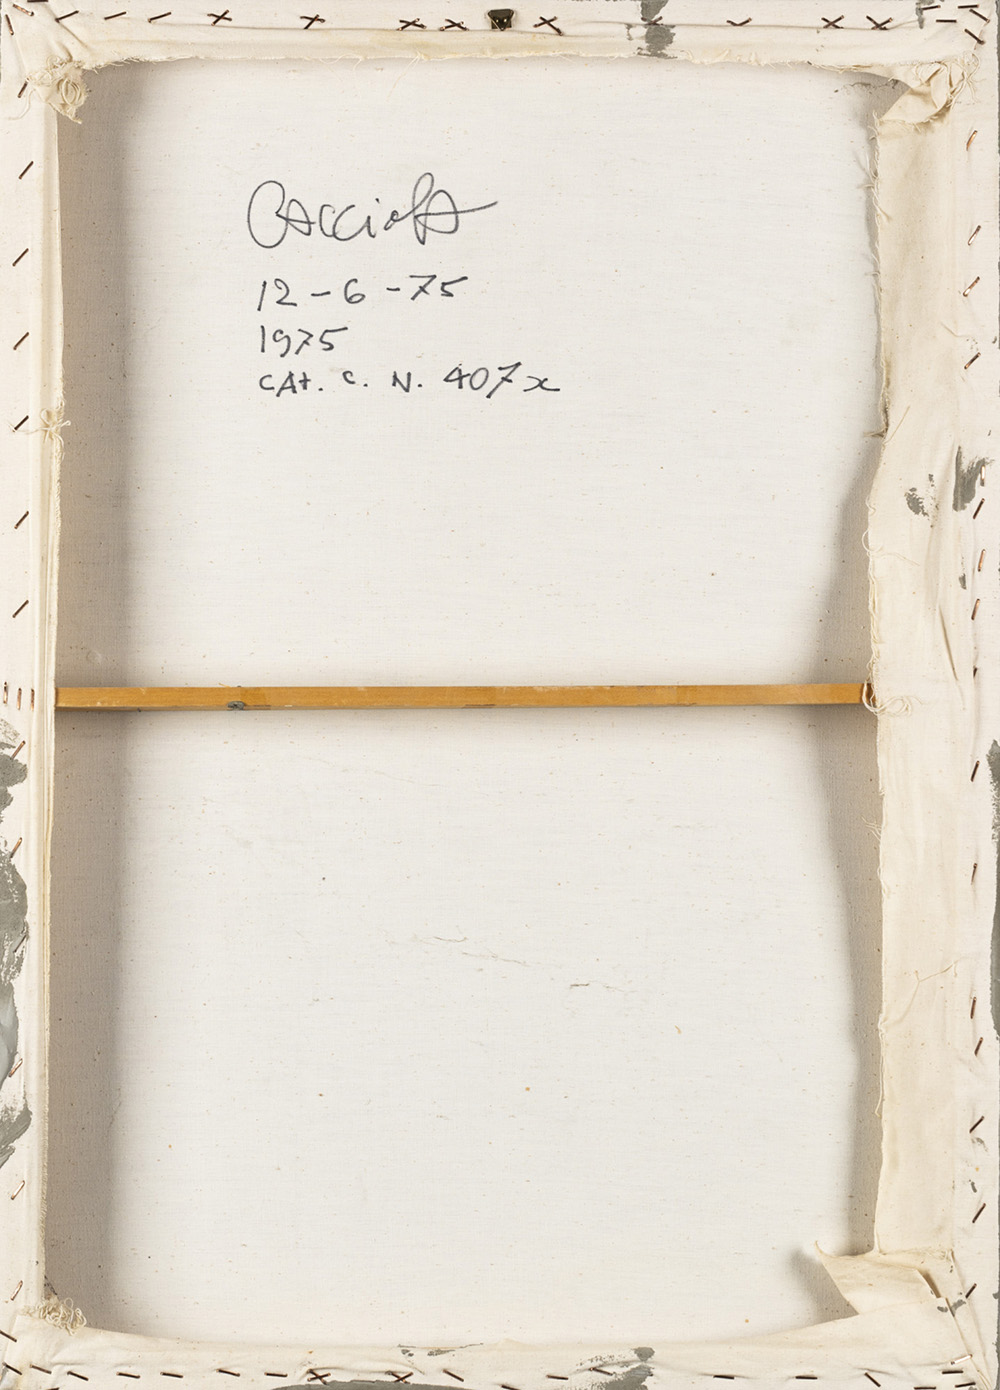 CACCIOLA
12-6-75
1975
CAt. C. N. 407x